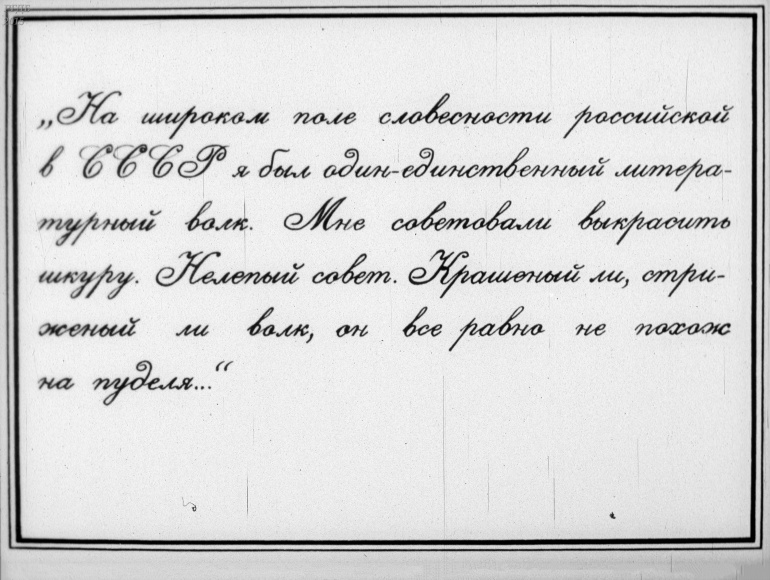 „На широком поле словесности российской
в СССР я был один-единственный литера-
турный волк. Мне советовали выкрасить
шкуру. Нелепый совет. Крашеный ли, стри-
женый ли волк, он все равно не похож
на пуделя...“